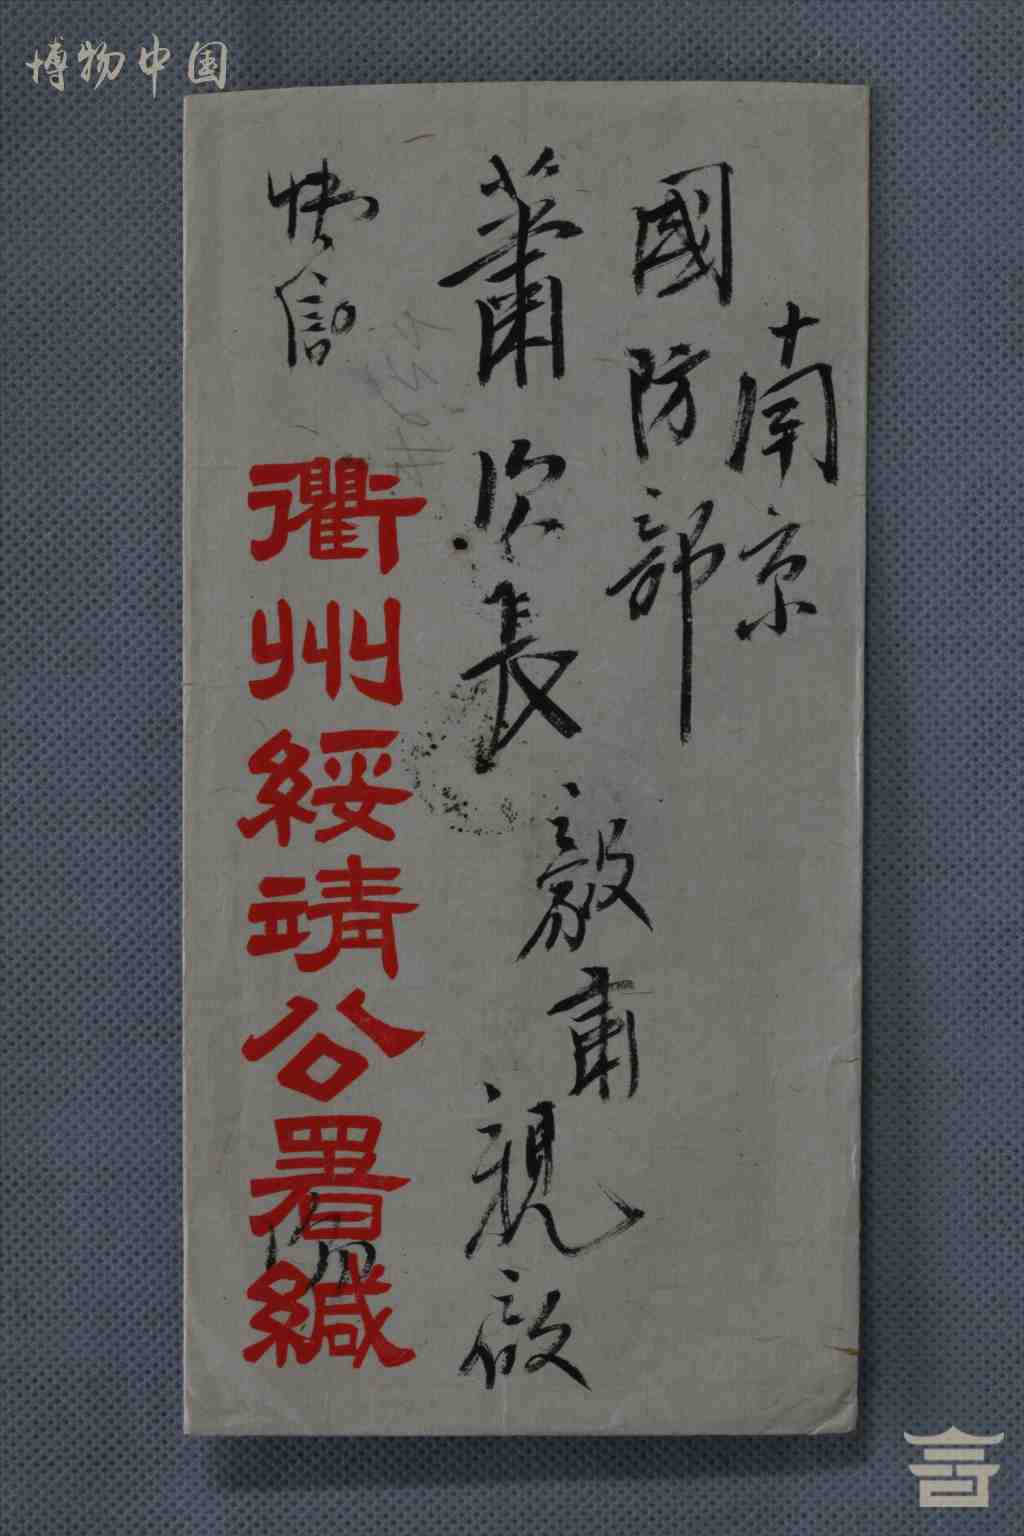 博物中国
南京
國防部
蕭次長毅肅親啟
快信
衢州綏靖公署緘